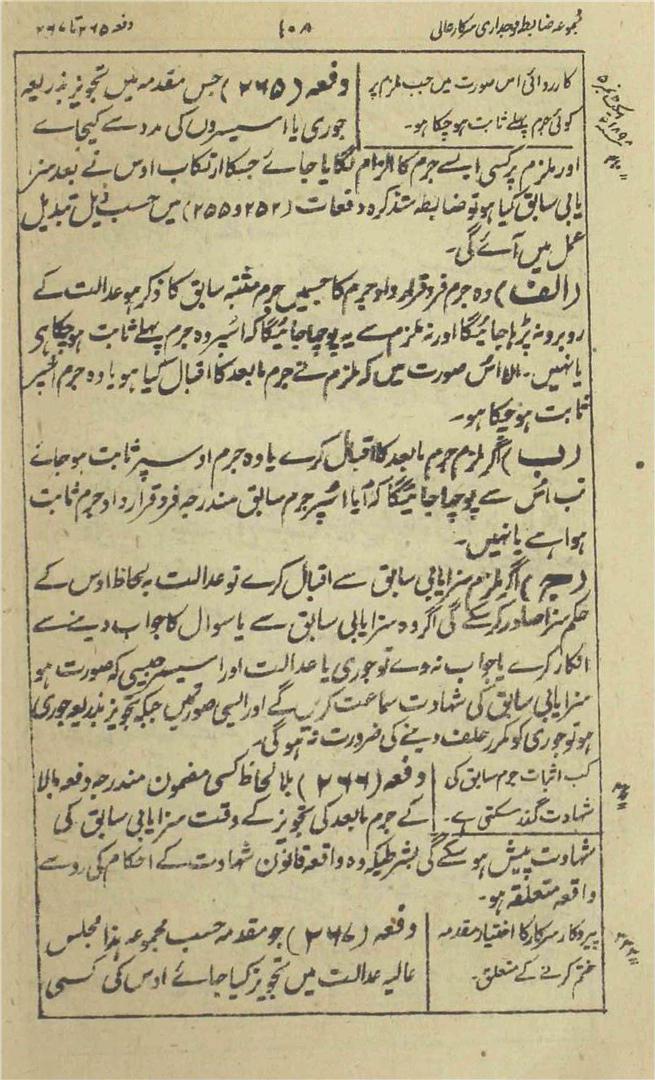 مجموعہ ضابطہ فوجداری سرکار عالی
۱۰۸
دفعہ ۲۶۵ تا ۲۶۷
کارروائی اس صورت میں جب ملزم پر
کوئی جرم پہلے ثابت ہو چکا ہو۔
دفعہ (۲۶۵) جس مقدمہ میں تجویز بذریعہ
جوری یا اسیسروں کی مدد سے کیجاے
اور ملزم پر کسی ایسے جرم کا الزام لگایا جاے جسکا ارتکاب اوس نے بعد سزا
یابی سابق کیا ہو تو ضابطہ متذکرہ دفعات (۲۵۲ و ۲۵۵) میں حسب ذیل تبدیل
عمل میں آے گی۔
(الف) وہ جرم فرد قرارداد جرم کا جسمیں جرم مثبتہ سابق کا ذکر ہو عدالت کے
روبرو نہ پڑہا جائیگا اور نہ ملزم سے یہ پوچہا جائیگا کہ اسپر وہ جرم پہلے ثابت ہو چکا ہی
یا نہیں۔ الا اس صورت میں کہ ملزم نے جرم مابعد کا اقبال کیا ہو یا وہ جرم اسپر
ثابت ہو چکا ہو۔
(ب) اگر ملزم جرم مابعد کا اقبال کرے یا وہ جرم اوسپر ثابت ہو جاے
تب اس سے پوچہا جائیگا کہ آیا اسپر جرم سابق مندرجہ فرد قرارداد جرم ثابت
ہوا ہے یا نہیں۔
(ج) اگر ملزم سزایابی سابق سے اقبال کرے تو عدالت بہ لحاظ اوس کے
حکم سزا صادر کر سکے گی اگر وہ سزایابی سابق سے یا سوال کا جواب دینے سے
انکار کرے یا جواب نہ دے تو جوری یا عدالت اور اسیسر جیسی کہ صورت ہو
سزایابی سابق کی شہادت سماعت کریں گے اور ایسی صورتمیں جبکہ تجویز بذریعہ جوری
ہو تو جوری کو مکرر حلف دینے کی ضرورت نہ ہوگی۔
کب اثبات جرم سابق کی
شہادت گذر سکتی ہے۔
دفعہ (۲۶۶) بلا لحاظ کسی مضمون مندرجہ دفعہ بالا
کے جرم مابعد کی تجویز کے وقت سزایابی سابق کی
شہادت پیش ہو سکے گی بشرطیکہ وہ واقعہ قانون شہادت کے احکام کی رو سے
واقعہ متعلقہ ہو۔
پیروکار سرکار کا اختیار مقدمہ
ختم کرنے کے متعلق۔
دفعہ (۲۶۷) جو مقدمہ حسب مجموعہ ہذا مجلس
عالیہ عدالت میں تجویز کیا جاے اوس کی کسی